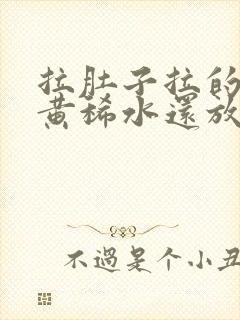 拉肚子拉的
黄稀水還放
不過是个小丑